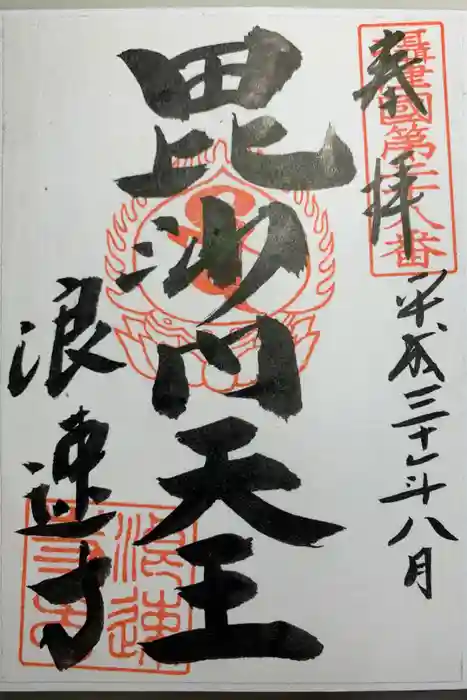 攝津國第廿八番
奉拝
平成三十年八月
毘沙門天王
浪速寺
浪速
寺印